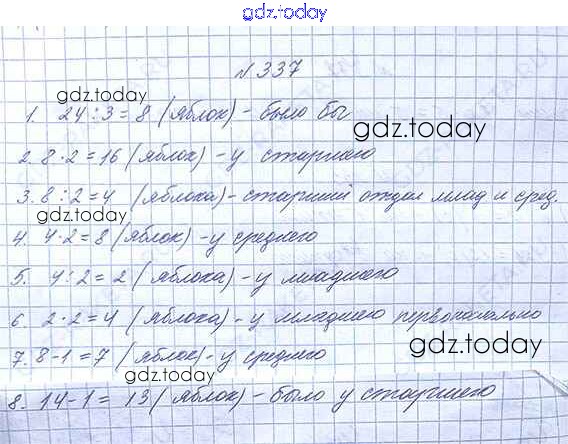 gdz.today
№337
gdz.today
1. 24:3=8 (яблок) - было бы
gdz.today
2. 8·2=16 (яблок) - у старшего
3. 8:2=4 (яблока) - старший отдал млад и сред.
gdz.today
4. 4·2=8 (яблок) - у среднего
5. 4:2=2 (яблока) - у младшего
6. 2·2=4 (яблока) - у младшего первоначально
gdz.today
7. 8-1=7 (яблок) - у среднего
gdz.today
8. 14-1= 13 (яблок) - было у старшего